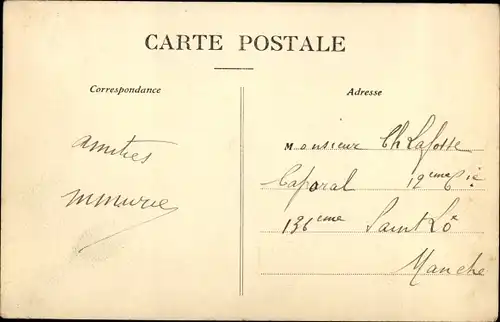 CARTE POSTALE
Correspondance
Adresse
amities
Monsieur Ch Lafosse
Caporal 12eme Cie
136eme Saint Lô
Manche